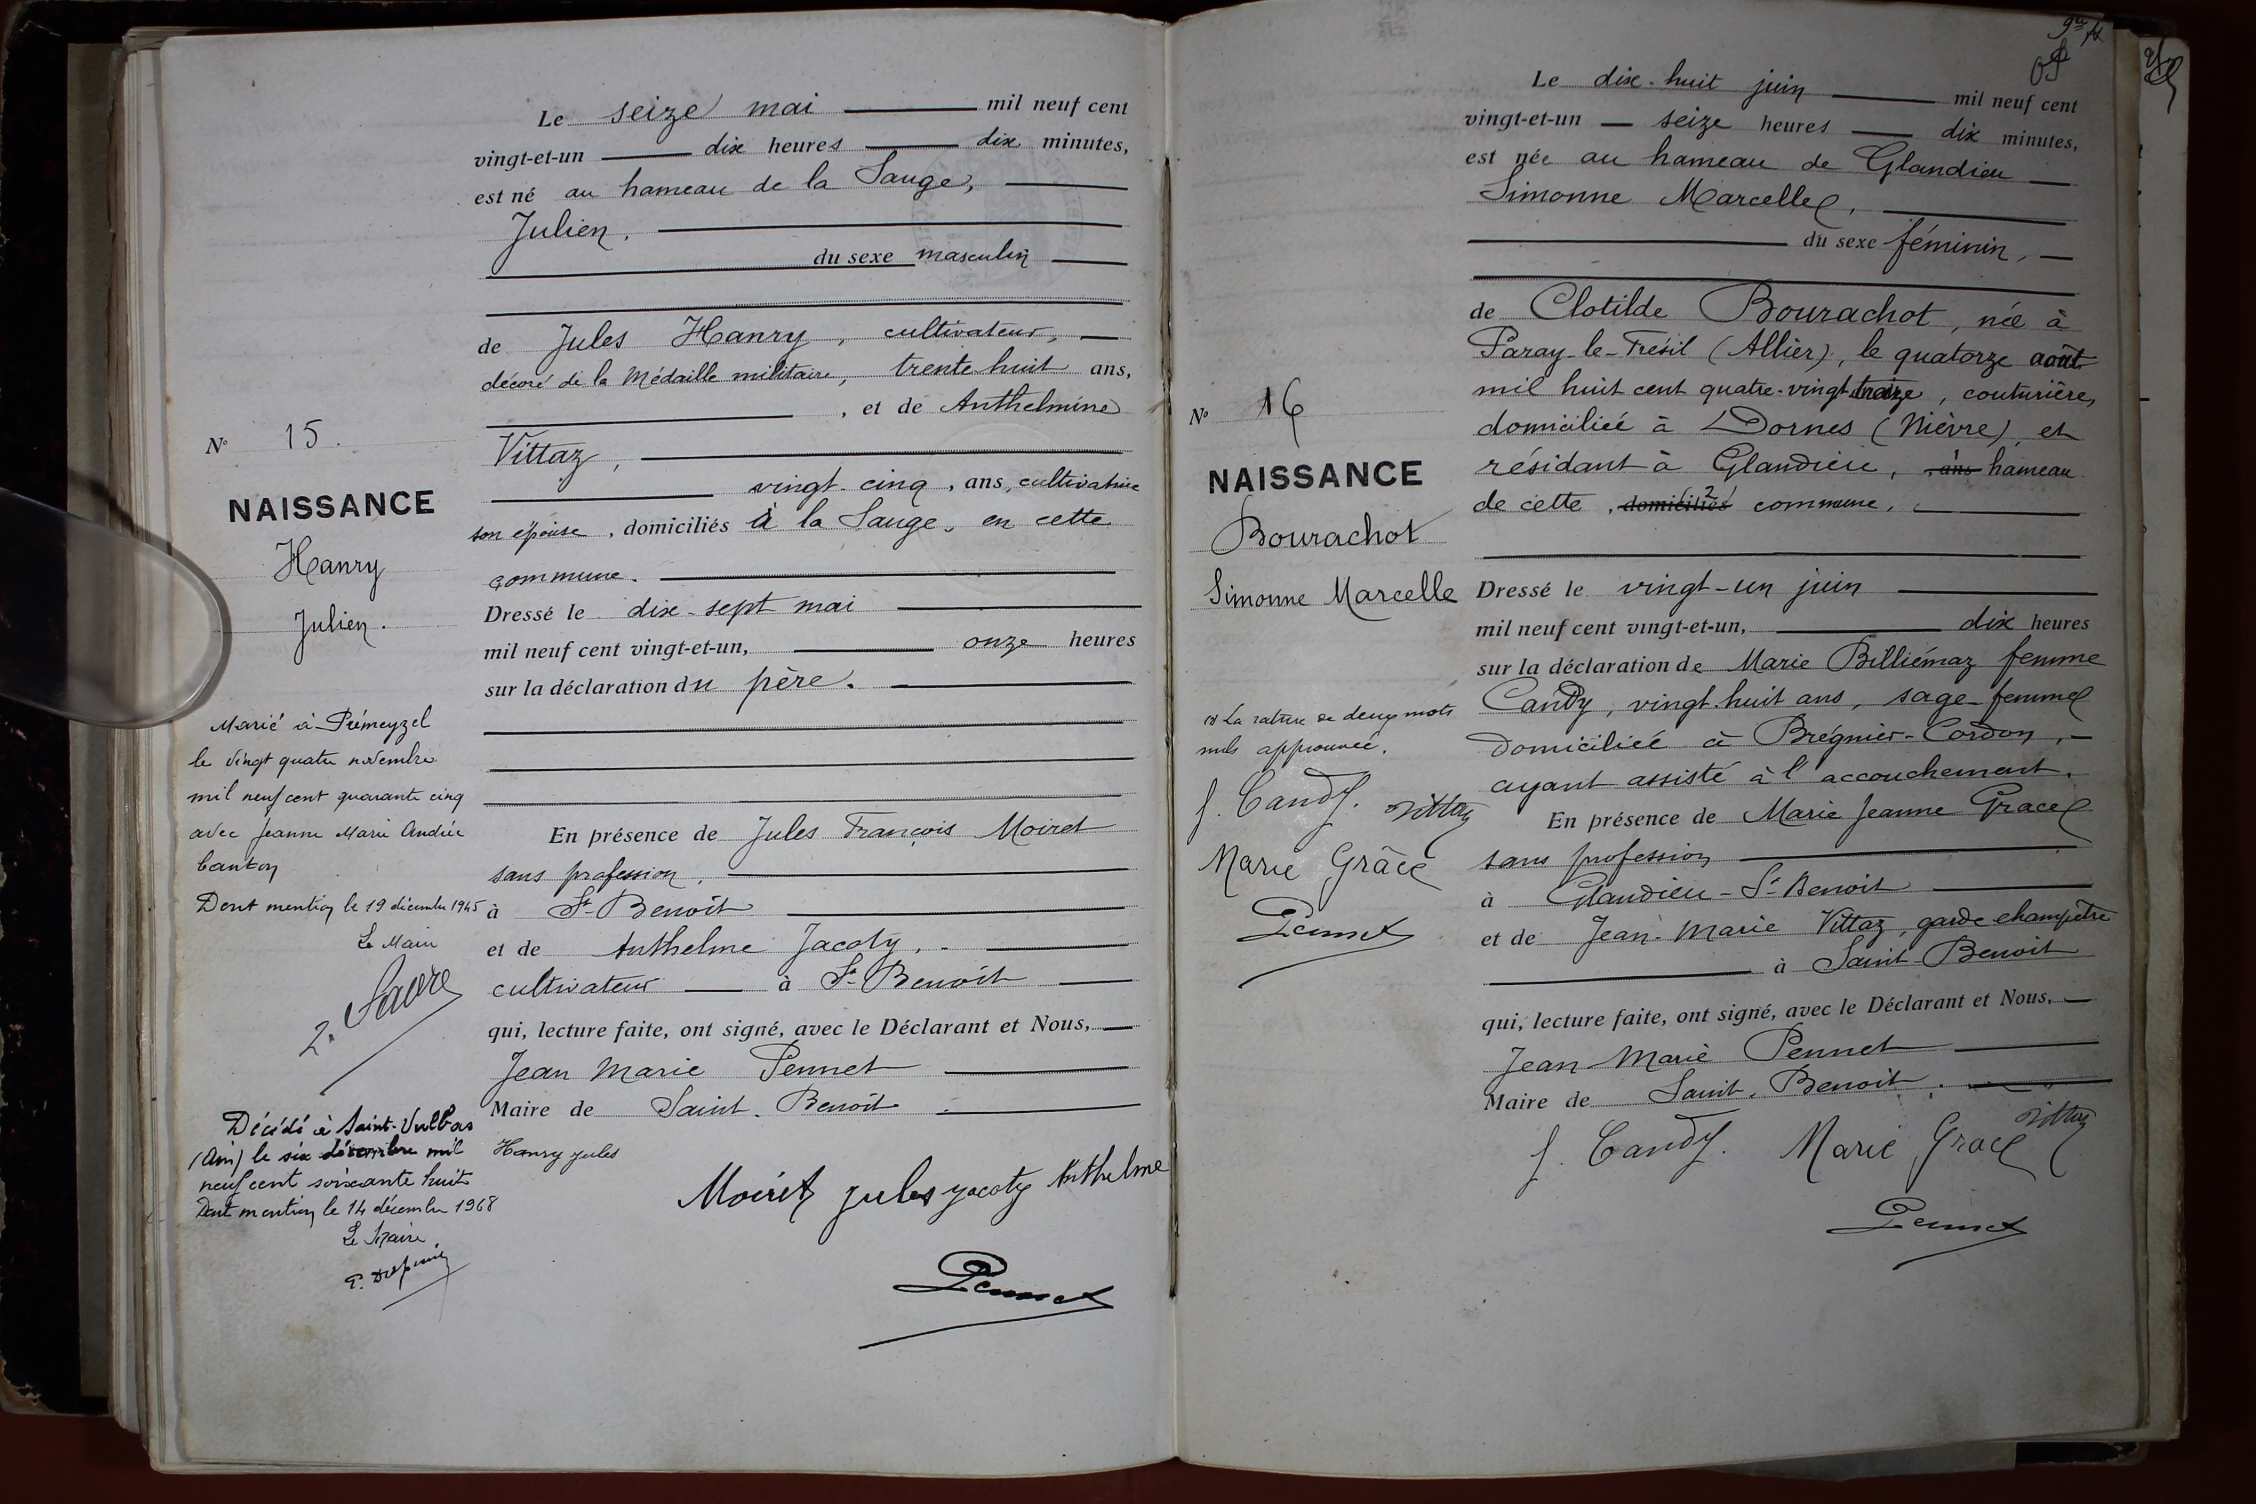 Le seize mai mil neuf cent
vingt-et-un dix heures dix minutes,
est né au hameau de la Sauge,
Julien,
du sexe masculin
de Jules Hanry, cultivateur,
décoré de la Médaille militaire, trente huit ans,
, et de Anthelmine
Vittaz,
vingt cinq, ans, cultivatrice
son épouse, domiciliés à la Sauge, en cette
commune.
Dressé le dix-sept mai
mil neuf cent vingt-et-un, onze heures
sur la déclaration du père.
En présence de Jules François Moiret
sans profession,
à St Benoît
et de Anthelme Jacoty,
cultivateur à St Benoît
qui, lecture faite, ont signé, avec le Déclarant et Nous,
Jean Marie Pennet
Maire de Saint-Benoît
Hanry Jules
Moiret jules jacoty Anthelme
Pennet
N° 15.
NAISSANCE
Hanry
Julien.
Marié à Prémeyzel
le vingt quatre novembre
mil neuf cent quarante cinq
avec Jeanne Marie Andrée
Canton
Dont mention le 19 décembre 1945
Le Maire
Décédé à Saint-Vulbas
(Ain) le six décembre mil
neuf cent soixante huit
Dont mention le 14 décembre 1968
Le Maire
Le dix-huit juin mil neuf cent
vingt-et-un seize heures dix minutes,
est née au hameau de Glandieu
Simonne Marcelle,
du sexe féminin,
de Clotilde Bourachot, née à
Paray-le-Frésil (Allier), le quatorze août
mil huit cent quatre-vingt treize, couturière,
domiciliée à Dornes (Nièvre), et
résidant à Glandieu, ans hameau
de cette, domiciliés commune,
Dressé le vingt-un juin
mil neuf cent vingt-et-un, dix heures
sur la déclaration de Marie Billiémaz femme
Candy, vingt-huit ans, sage-femme
domiciliée à Brégnier-Cordon,
ayant assisté à l'accouchement.
En présence de Marie Jeanne Grace
sans profession
à Glandieu-St-Benoît
et de Jean-Marie Vittaz, garde champêtre
à Saint-Benoît
qui, lecture faite, ont signé, avec le Déclarant et Nous,
Jean Marie Pennet
Maire de Saint-Benoît.
Vittaz
f. Candy. Marie Grace
Pennet
N° 16
NAISSANCE
Bourachot
Simonne Marcelle
La rature de deux mots
nuls approuvée.
f. Candy. Vittaz
Marie Grâce
Pennet